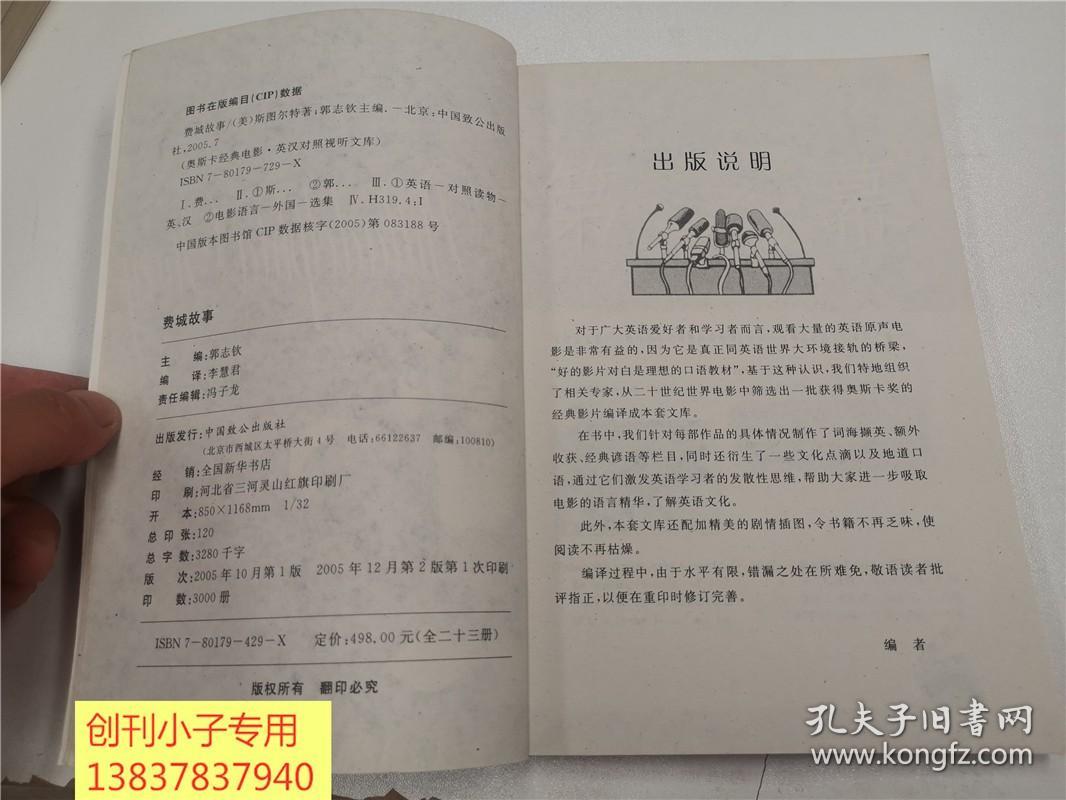 图书在版编目(CIP)数据
费城故事/(美)斯图尔特著;郭志钦主编.—北京:中国致公出版
社,2005.7
(奥斯卡经典电影·英汉对照视听文库)
ISBN 7-80179-729-X
Ⅰ.费… Ⅱ.①斯… ②郭… Ⅲ.①英语-对照读物-
英、汉 ②电影语言-外国-选集 Ⅳ.H319.4:I
中国版本图书馆CIP数据核字(2005)第083188号
费城故事
主 编:郭志钦
编 译:李慧君
责任编辑:冯子龙
出版发行:中国致公出版社
(北京市西城区太平桥大街4号 电话:66122637 邮编:100810)
经 销:全国新华书店
印 刷:河北省三河灵山红旗印刷厂
开 本:850×1168mm 1/32
总 印 张:120
总 字 数:3280千字
版 次:2005年10月第1版 2005年12月第2版第1次印刷
印 数:3000册
ISBN 7-80179-429-X 定价:498.00元(全二十三册)
版权所有 翻印必究
创刊小子专用
13837837940
出版说明
对于广大英语爱好者和学习者而言,观看大量的英语原声电
影是非常有益的,因为它是真正同英语世界大环境接轨的桥梁,
“好的影片对白是理想的口语教材”,基于这种认识,我们特地组织
了相关专家,从二十世纪世界电影中筛选出一批获得奥斯卡奖的
经典影片编译成本套文库。
在书中,我们针对每部作品的具体情况制作了词海撷英、额外
收获、经典谚语等栏目,同时还衍生了一些文化点滴以及地道口
语,通过它们激发英语学习者的发散性思维,帮助大家进一步吸取
电影的语言精华,了解英语文化。
此外,本套文库还配加精美的剧情插图,令书籍不再乏味,使
阅读不再枯燥。
编译过程中,由于水平有限,错漏之处在所难免,敬语读者批
评指正,以便在重印时修订完善。
编 者
孔夫子旧书网
www.kongfz.com